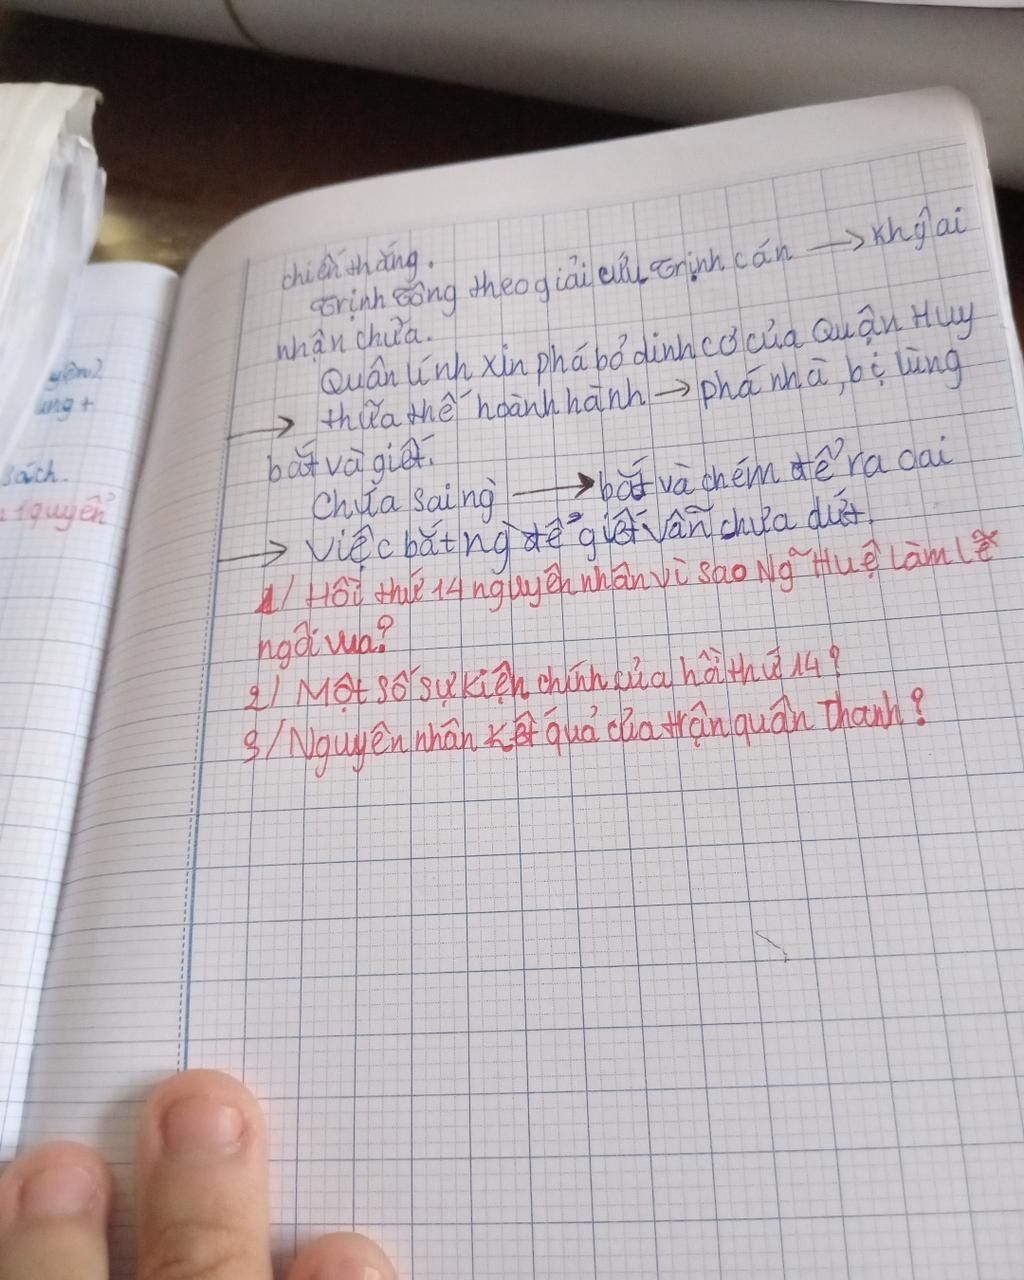 chiến thắng.
Trịnh Tông theo giải cứu Trịnh Cán → Khg ai
nhận chưa.
Quân lính xin phá bỏ dinh cơ của Quận Huy
→ thừa thế hoành hành → phá nhà, bị lùng
bắt và giết.
Chưa sai ng → bắt và chém để ra oai
→ việc bắt ng để giết vẫn chưa dứt.
1/ Hồi thứ 14 nguyên nhân vì sao Ng~ Huệ làm lễ
ngôi vua?
2/ Một số sự kiện chính của hồi thứ 14?
3/ Nguyên nhân kết quả của trận quân Thanh?
ung +
sách.
quyển